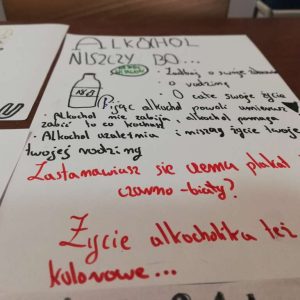 ALKOHOL
NISZCZY BO...
Zadbaj o swoje zdrowie
o rodzinę
O całe swoje życie
Pijąc alkohol powoli umierasz
Alkohol nie zabija, alkohol pomaga
zabić to co kochasz
Alkohol uzależnia i niszczy życie twoje i
twojej rodziny
Zastanawiasz się czemu plakat
czarno-biały?
Życie alkocholika też
kolorowe...